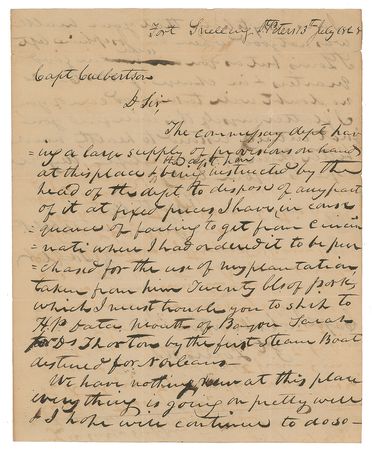 Fort Snelling, St Peters 13th July 1848
Capt Culbertson
D. Sir,
The commissary dept hav
=ing a large supply of provisions on hand
at this place & being instructed by the
head of the dept to dispose of any part
of it at fixed prices, I have, in conse
=quence of failing to get from Cincin
=nati where I had ordered it to be pur
=chased for the use of my plantation,
taken from him Twenty bls of pork,
which I must trouble you to ship to
Mouth of Bayou Sarah
Thornton by the first Steam Boat
destined for N. Orleans—
We have nothing new at this place
everything is going on pretty well
& I hope will continue to do so—